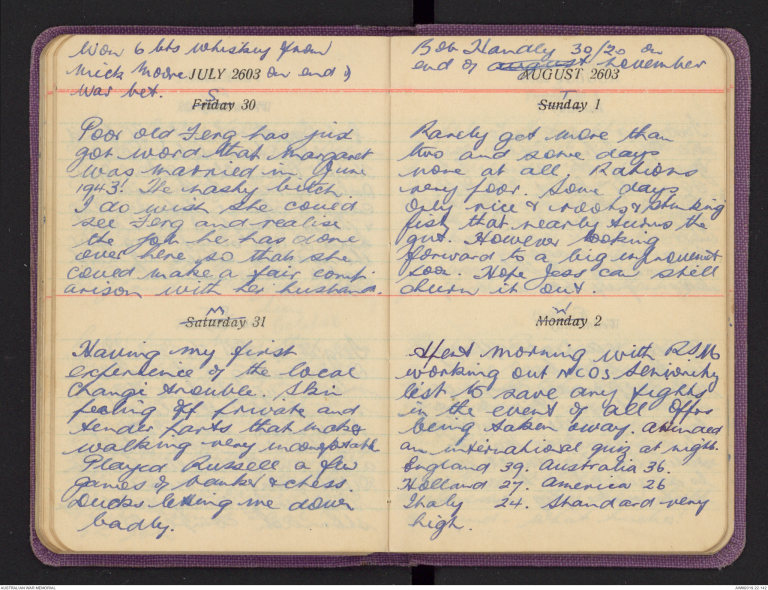 Won 6 bts whiskey from
Mick Moore JULY 2603 on end of
war bet.
S
Friday 30
Poor old Ferg has just
got word that Margaret
was married in June
1943! The nasty bitch.
I do wish she could
see Ferg and realise
the job he has done
over here so that she
could make a fair comp-
arison with her husband.
M
Saturday 31
Having my first
experience of the local
changi trouble. Skin
peeling off private and
tender parts that makes
walking very uncomfortable
Played Russell a few
games of banker & chess.
Ducks letting me down
badly.
Bob Handly 30/20 on
end of august November
AUGUST 2603
T
Sunday 1
Rarely get more than
two and some days
none at all. Rations
very poor. Some days
only rice & roots & stinking
fish that nearly turns the
gut. However looking
forward to a big improvement
soon. Hope Jess can still
churn it out.
W
Monday 2
Spent morning with RSM
working out NCOs seniority
list to save any fights
in the event of all Offrs
being taken away. Attended
an international quiz at night.
England 39. Australia 36.
Holland 27. America 26
Italy 24. Standard very
high.
AUSTRALIAN WAR MEMORIAL